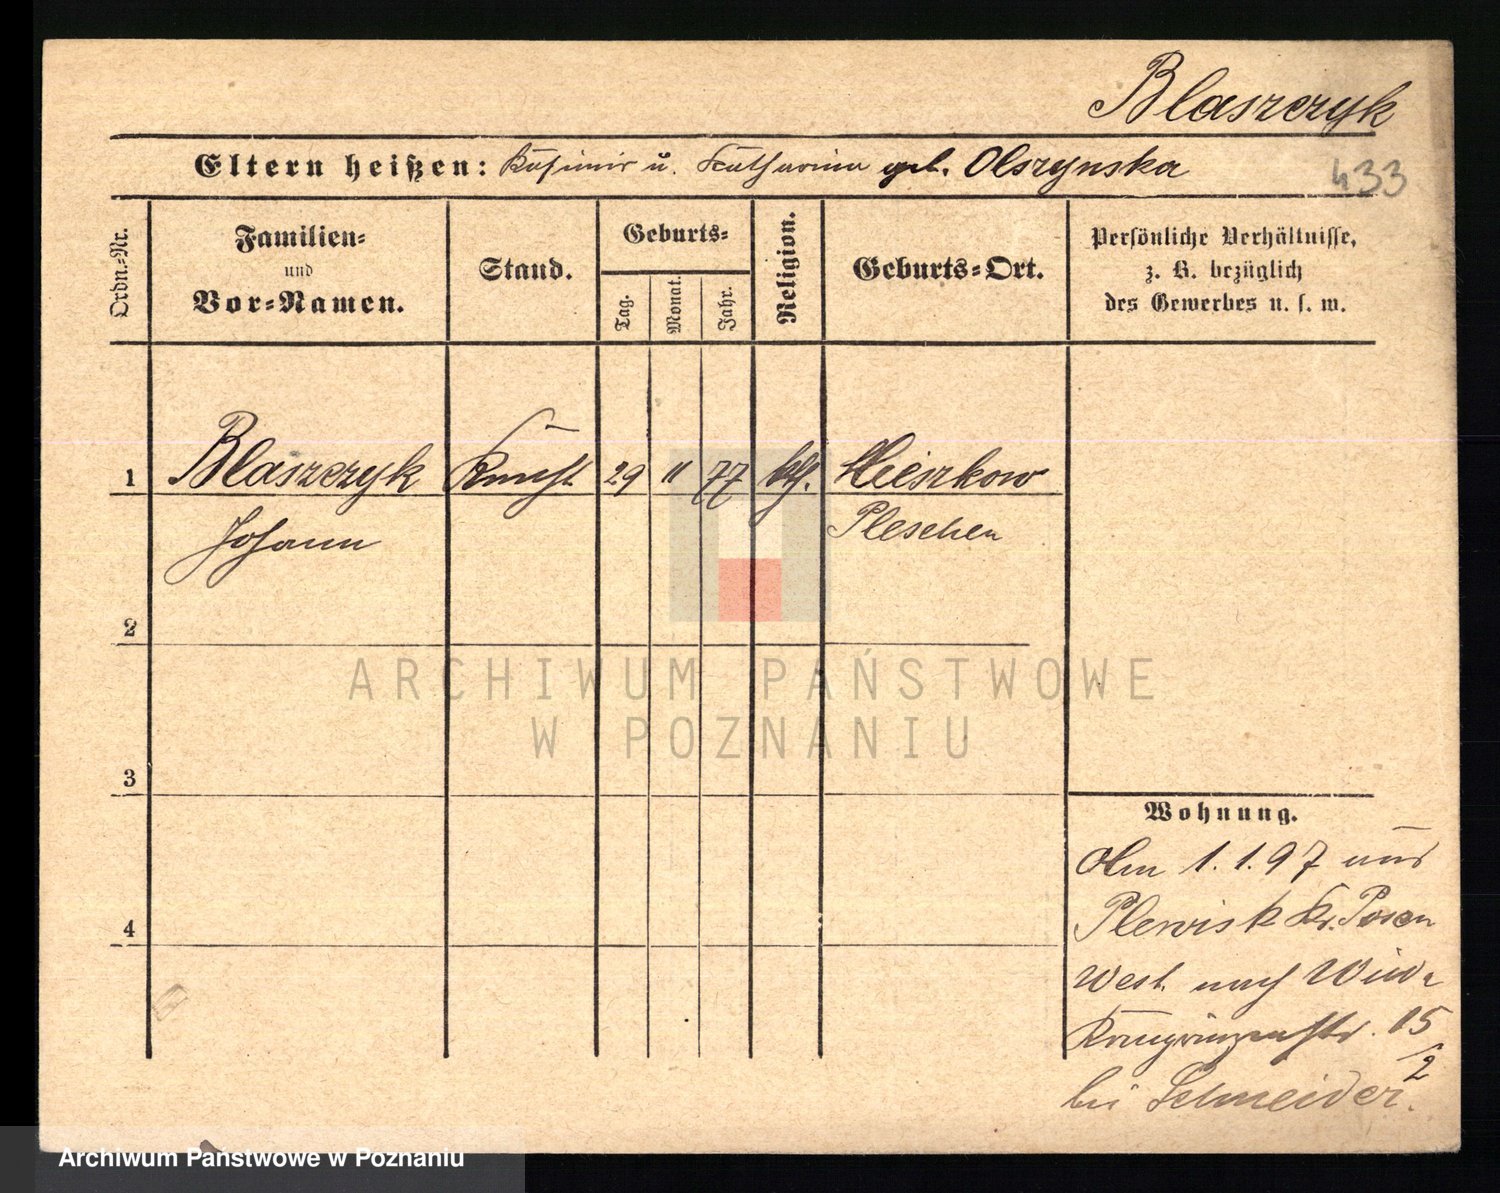 Blaszczyk
Eltern heißen: Kasimir u. Katharina geb. Olszynska
433
Ordn.-Nr.
Familien-
und
Vor-Namen.
Stand.
Geburts-
Tag.
Monat.
Jahr.
Religion.
Geburts-Ort.
Persönliche Verhältnisse,
z. B. bezüglich
des Gewerbes u. s. w.
1 Blaszczyk Knecht 29 11 77 kth. Mieszkow
Johann Pleschen
2
3
4
Wohnung.
Am 1.1.97 aus
Plewisk Kr. Posen
West nach Wilda
Kronprinzenstr. 15
2
bei Schneider.
ARCHIWUM PAŃSTWOWE
W POZNANIU
Archiwum Państwowe w Poznaniu